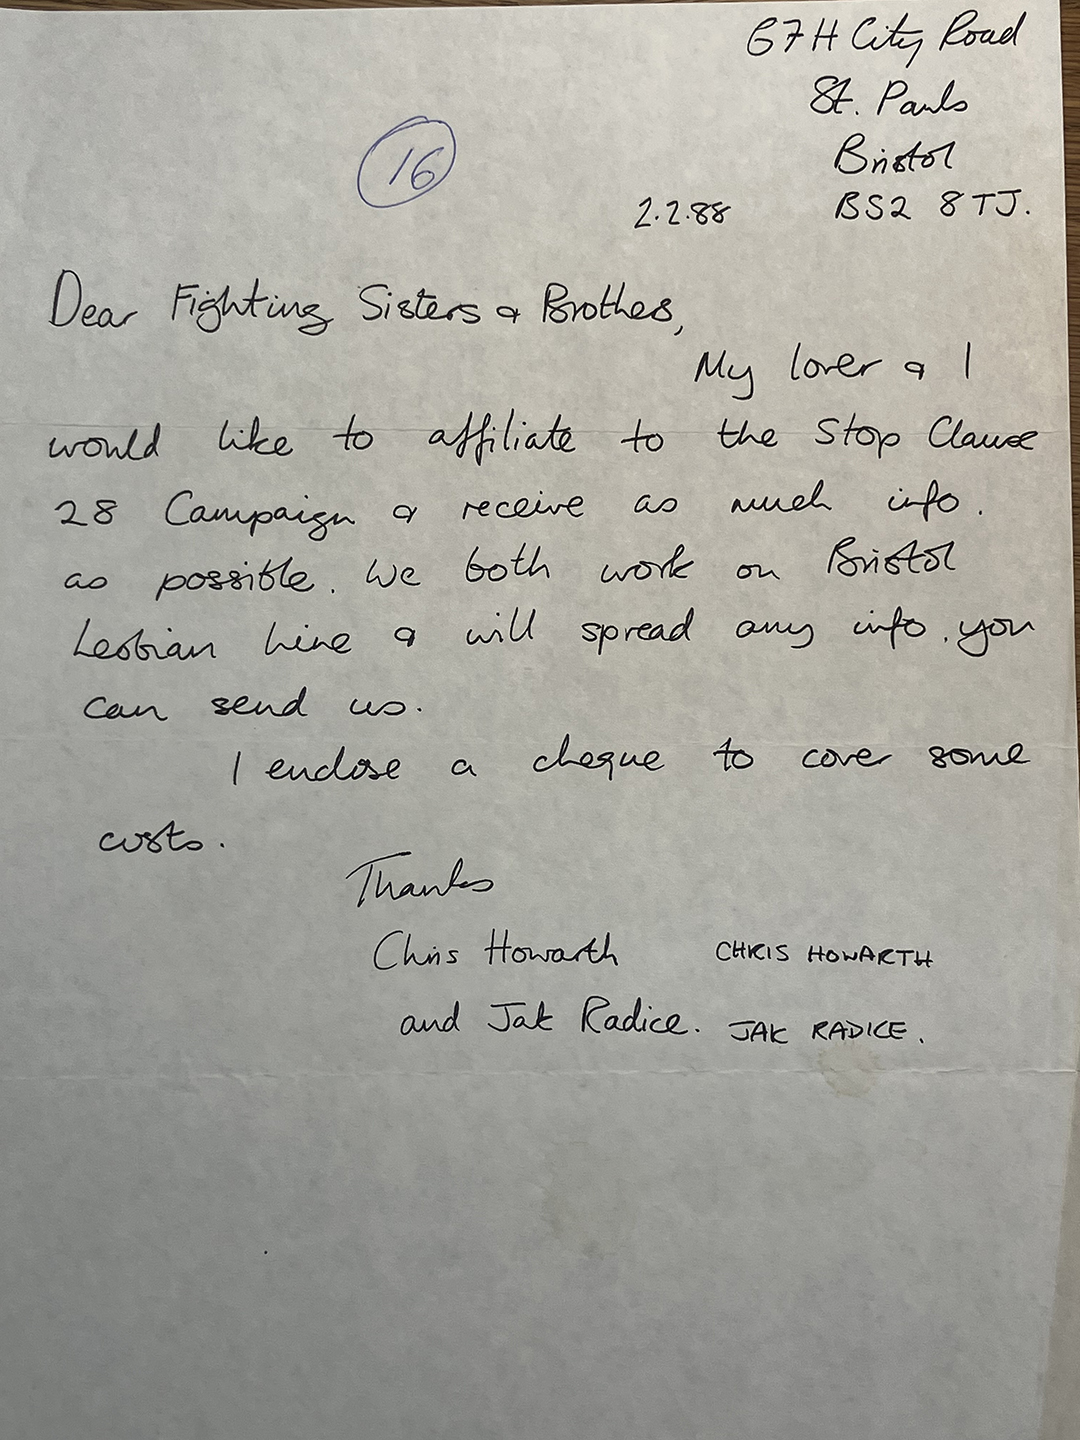 67H City Road
St. Pauls
Bristol
16
2.2.88 BS2 8TJ.
Dear Fighting Sisters & Brothers,
My lover & I
would like to affiliate to the Stop Clause
28 Campaign & receive as much info.
as possible. We both work on Bristol
Lesbian Line & will spread any info. you
can send us.
I enclose a cheque to cover some
costs.
Thanks
Chris Howarth CHRIS HOWARTH
and Jak Radice. JAK RADICE.